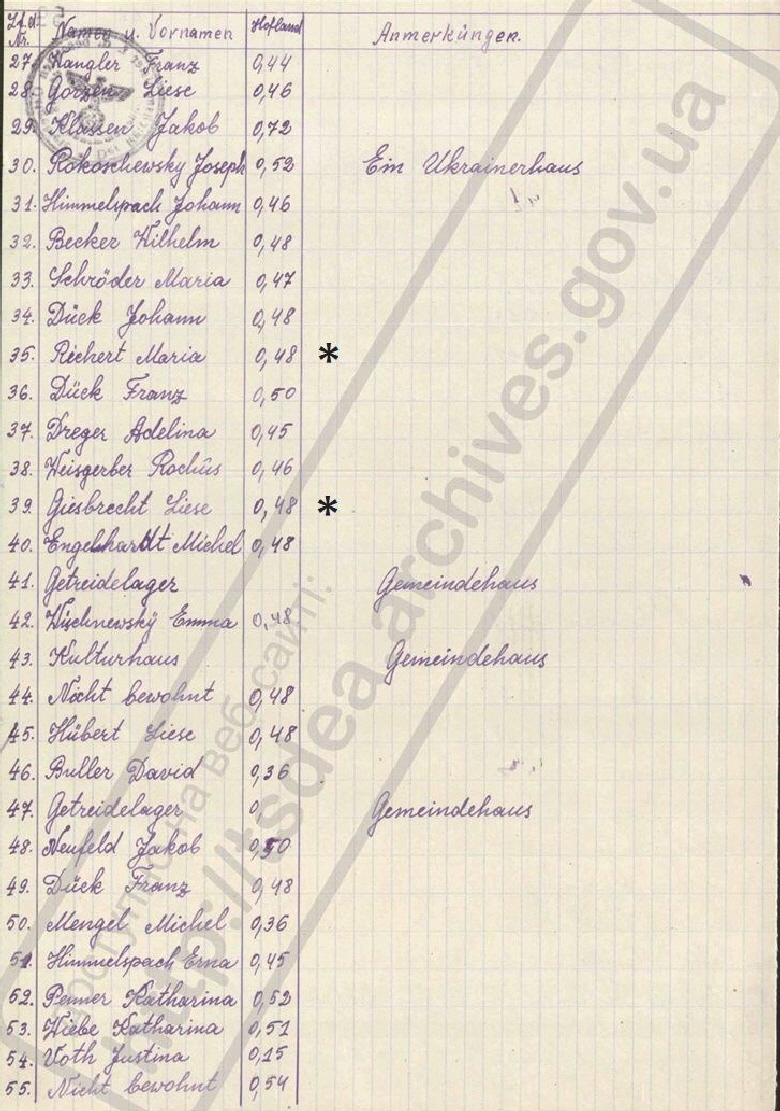 Lfd. Nr. Namen u. Vornamen Hofland Anmerkungen.
27. Wangler Franz 0,44
28. Görzen Liese 0,46
29. Klassen Jakob 0,72
30. Rokoschewsky Joseph 0,52 Ein Ukrainerhaus
31. Himmelspach Johann 0,46
32. Becker Wilhelm 0,48
33. Schröder Maria 0,47
34. Dück Johann 0,48
35. Richert Maria 0,48 *
36. Dück Franz 0,50
37. Dreger Adelina 0,45
38. Weisgerber Rochus 0,46
39. Giesbrecht Liese 0,48 *
40. Engelhardt Michel 0,48
41. Getreidelager Gemeindehaus
42. Wischnewsky Emma 0,48
43. Kulturhaus Gemeindehaus
44. Nicht bewohnt 0,48
45. Hübert Liese 0,48
46. Buller David 0,36
47. Getreidelager 0, Gemeindehaus
48. Neufeld Jakob 0,50
49. Dück Franz 0,48
50. Mengel Michel 0,36
51. Himmelspach Erna 0,45
52. Penner Katharina 0,52
53. Wiebe Katharina 0,51
54. Voth Justina 0,15
55. Nicht bewohnt 0,54
на веб-сайті:
http://tsdea.archives.gov.ua